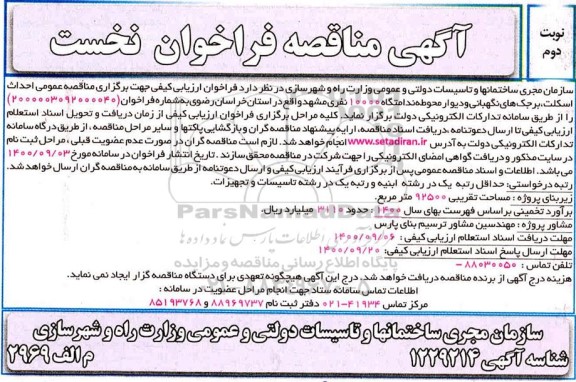 نوبت دوم
آگهی مناقصه فراخوان نخست
سازمان مجری ساختمانها و تاسیسات دولتی و عمومی وزارت راه و شهرسازی در نظر دارد فراخوان ارزیابی کیفی جهت برگزاری مناقصه عمومی احداث
اسکلت، برجک‌های نگهبانی و دیوار محوطه ندامتگاه ۱۰۰۰۰ نفری مشهد واقع در استان خراسان رضوی به شماره فراخوان (۲۰۰۰۰۰۳۰۹۲۰۰۰۰۴۰)
را از طریق سامانه تدارکات الکترونیکی دولت برگزار نماید. کلیه مراحل برگزاری فراخوان ارزیابی کیفی از زمان دریافت و تحویل اسناد استعلام
ارزیابی کیفی تا ارسال دعوتنامه ، دریافت اسناد مناقصه، ارایه پیشنهاد مناقصه گران و بازگشایی پاکتها و سایر مراحل مناقصه ، از طریق درگاه سامانه
تدارکات الکترونیکی دولت به آدرس www.setadiran.ir انجام خواهد شد. لازم است مناقصه گران در صورت عدم عضویت قبلی ، مراحل ثبت نام
در سایت مذکور و دریافت گواهی امضای الکترونیکی را جهت شرکت در مناقصه محقق سازند . تاریخ انتشار فراخوان در سامانه مورخ ۱۴۰۰/۰۹/۰۳
می باشد. اطلاعات و اسناد مناقصه عمومی پس از برگزاری فرآیند ارزیابی کیفی و ارسال دعوتنامه از طریق سامانه به مناقصه گران ارسال خواهد شد.
رتبه درخواستی: حداقل رتبه یک در رشته ابنیه و رتبه یک در رشته تاسیسات و تجهیزات.
زیربنای پروژه : مساحت تقریبی ۹۲۵۰۰ متر مربع.
برآورد تخمینی براساس فهرست بهای سال ۱۴۰۰ : حدود ۳۱۱۰ میلیارد ریال.
مشاور پروژه : مهندسین مشاور ترسیم بنای پارس
مهلت دریافت اسناد استعلام ارزیابی کیفی : ۱۴۰۰/۰۹/۰۶
مهلت ارسال پاسخ اسناد استعلام ارزیابی کیفی: ۱۴۰۰/۰۹/۲۰
تلفن تماس : ۸۸۰۳۰۰۵۰
هزینه درج آگهی از برنده مناقصه دریافت خواهد شد. درج این آگهی هیچگونه تعهدی برای دستگاه مناقصه گزار ایجاد نمی نماید.
اطلاعات تماس سامانه ستاد جهت انجام مراحل عضویت در سامانه :
مرکز تماس ۴۱۹۳۴-۰۲۱ دفتر ثبت نام ۸۸۹۶۹۷۳۷ و ۸۵۱۹۳۷۶۸
سازمان مجری ساختمانها و تاسیسات دولتی و عمومی وزارت راه و شهرسازی
شناسه آگهی ۱۲۲۹۲۱۴ م الف ۲۹۶۹